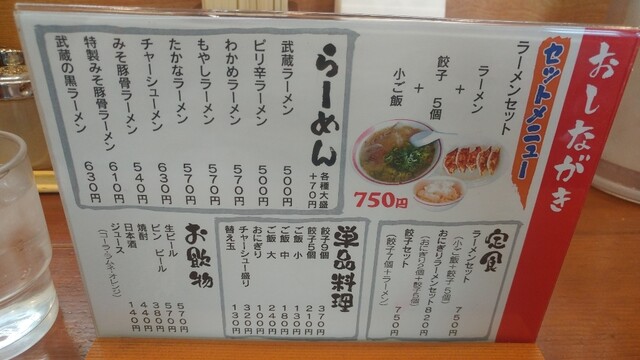 おしながき
セットメニュー
ラーメンセット
ラーメン
+
餃子 5個
+
小ご飯
750円
らーめん
各種大盛
+70円
武蔵ラーメン 500円
ピリ辛ラーメン 500円
わかめラーメン 570円
もやしラーメン 570円
たかなラーメン 570円
チャーシューメン 630円
みそ豚骨ラーメン 540円
特製みそ豚骨ラーメン 610円
武蔵の黒ラーメン 630円
定食
ラーメンセット 750円
(小ご飯+餃子5個)
おにぎりラーメンセット 820円
(おにぎり2個+餃子5個)
餃子セット 750円
(餃子7個+ラーメン)
単品料理
餃子9個 370円
餃子5個 210円
ご飯 小 130円
ご飯 中 180円
ご飯 大 210円
おにぎり 100円
チャーシュー盛り 320円
替え玉 130円
お飲物
生ビール 570円
ビンビール 570円
焼酎 380円
日本酒 440円
ジュース 140円
(コーラ・ラムネ・オレンジ)